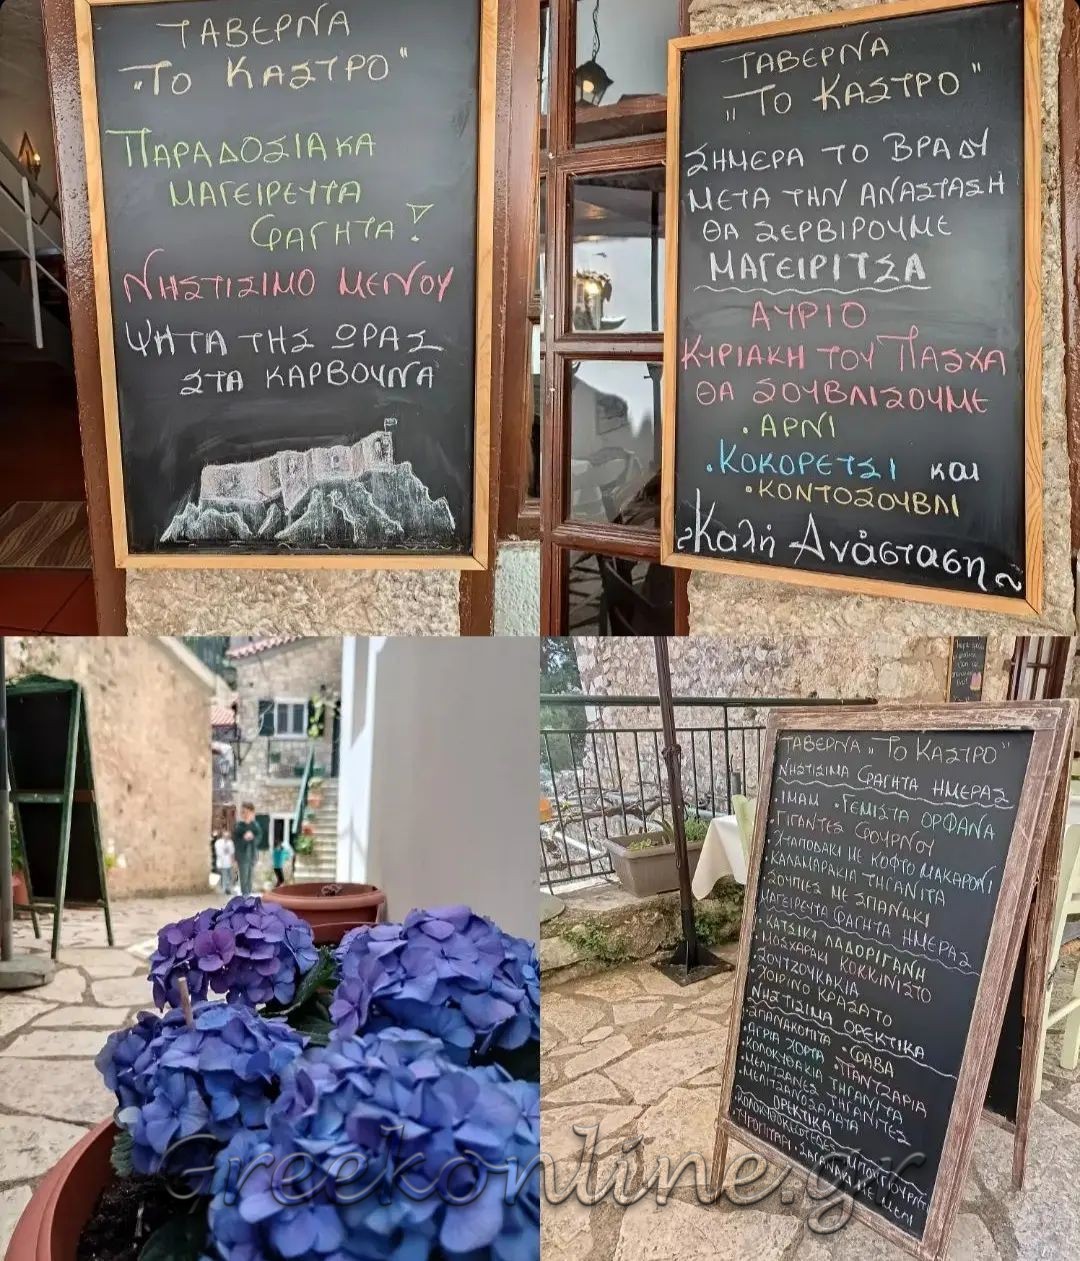 ΤΑΒΕΡΝΑ
"ΤΟ ΚΑΣΤΡΟ"
ΠΑΡΑΔΟΣΙΑΚΑ
ΜΑΓΕΙΡΕΥΤΑ
ΦΑΓΗΤΑ!
ΝΗΣΤΙΣΙΜΟ ΜΕΝΟΥ
ΨΗΤΑ ΤΗΣ ΩΡΑΣ
ΣΤΑ ΚΑΡΒΟΥΝΑ
ΤΑΒΕΡΝΑ
"ΤΟ ΚΑΣΤΡΟ"
ΣΗΜΕΡΑ ΤΟ ΒΡΑΔΥ
ΜΕΤΑ ΤΗΝ ΑΝΑΣΤΑΣΗ
ΘΑ ΣΕΡΒΙΡΟΥΜΕ
ΜΑΓΕΙΡΙΤΣΑ
ΑΥΡΙΟ
ΚΥΡΙΑΚΗ ΤΟΥ ΠΑΣΧΑ
ΘΑ ΣΟΥΒΛΙΣΟΥΜΕ
• ΑΡΝΙ
• ΚΟΚΟΡΕΤΣΙ και
• ΚΟΝΤΟΣΟΥΒΛΙ
~Καλή Ανάσταση~
ΤΑΒΕΡΝΑ "ΤΟ ΚΑΣΤΡΟ"
ΝΗΣΤΙΣΙΜΑ ΦΑΓΗΤΑ ΗΜΕΡΑΣ
• ΙΜΑΜ • ΓΕΜΙΣΤΑ ΟΡΦΑΝΑ
• ΓΙΓΑΝΤΕΣ ΦΟΥΡΝΟΥ
• ΧΤΑΠΟΔΑΚΙ ΜΕ ΚΟΦΤΟ ΜΑΚΑΡΟΝΙ
• ΚΑΛΑΜΑΡΑΚΙΑ ΤΗΓΑΝΙΤΑ
• ΣΟΥΠΙΕΣ ΜΕ ΣΠΑΝΑΚΙ
ΜΑΓΕΙΡΕΥΤΑ ΦΑΓΗΤΑ ΗΜΕΡΑΣ
• ΚΑΤΣΙΚΙ ΛΑΔΟΡΙΓΑΝΗ
• ΜΟΣΧΑΡΑΚΙ ΚΟΚΚΙΝΙΣΤΟ
• ΣΟΥΤΖΟΥΚΑΚΙΑ
• ΧΟΙΡΙΝΟ ΚΡΑΣΑΤΟ
ΝΗΣΤΙΣΙΜΑ ΟΡΕΚΤΙΚΑ
• ΣΠΑΝΑΚΟΠΙΤΑ • ΦΑΒΑ
• ΑΓΡΙΑ ΧΟΡΤΑ • ΠΑΝΤΖΑΡΙΑ
• ΚΟΛΟΚΥΘΑΚΙΑ ΤΗΓΑΝΙΤΑ
• ΜΕΛΙΤΖΑΝΕΣ ΤΗΓΑΝΙΤΕΣ
• ΜΕΛΙΤΖΑΝΟΣΑΛΑΤΑ
ΟΡΕΚΤΙΚΑ
ΣΑΓΑΝΑΚΙ ΜΕ ΜΕΛΙ
Greekonline.gr